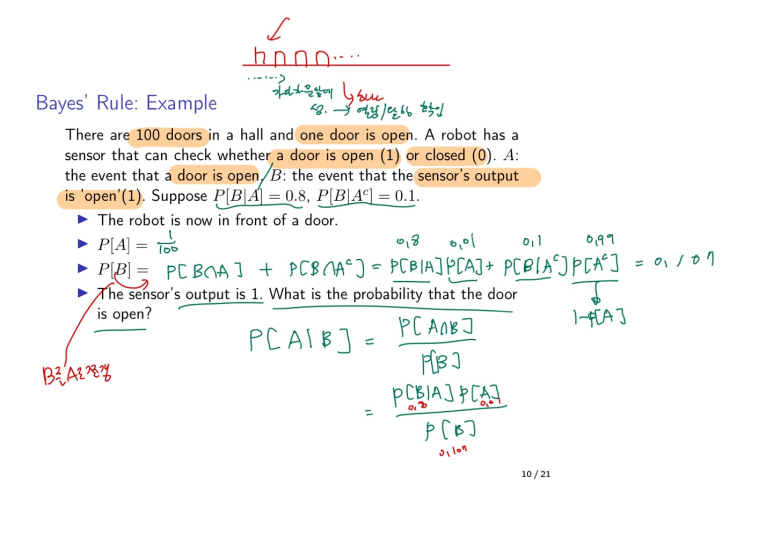 h n n n ....
Bayes' Rule: Example
There are 100 doors in a hall and one door is open. A robot has a
sensor that can check whether a door is open (1) or closed (0). A:
the event that a door is open, B: the event that the sensor's output
is 'open'(1). Suppose P[B|A] = 0.8, P[B|Aᶜ] = 0.1.
▶ The robot is now in front of a door.
0,8 0,01 0,1 0,99
▶ P[A] = 1/100
▶ P[B] = P[B∩A] + P[B∩Aᶜ] = P[B|A]P[A] + P[B|Aᶜ]P[Aᶜ] = 0,107
▶ The sensor's output is 1. What is the probability that the door
is open?
1-P[A]
P[A|B] = P[A∩B] / P[B]
= P[B|A]P[A] / P[B]
0,8 0,01
0,107
10 / 21